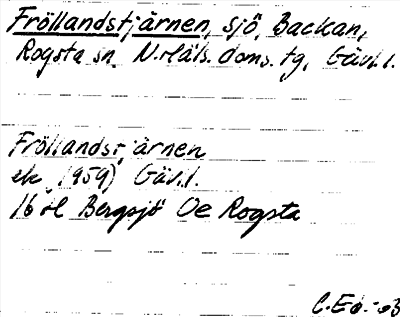 Fröllandstjärnen, sjö, Backan,
Rogsta sn. N.Häls. doms. tg, Gävl.l.
Fröllandstjärnen
ek (1959) Gävl.l.
16 Bergsjö Oe Rogsta
C.Eö.-63